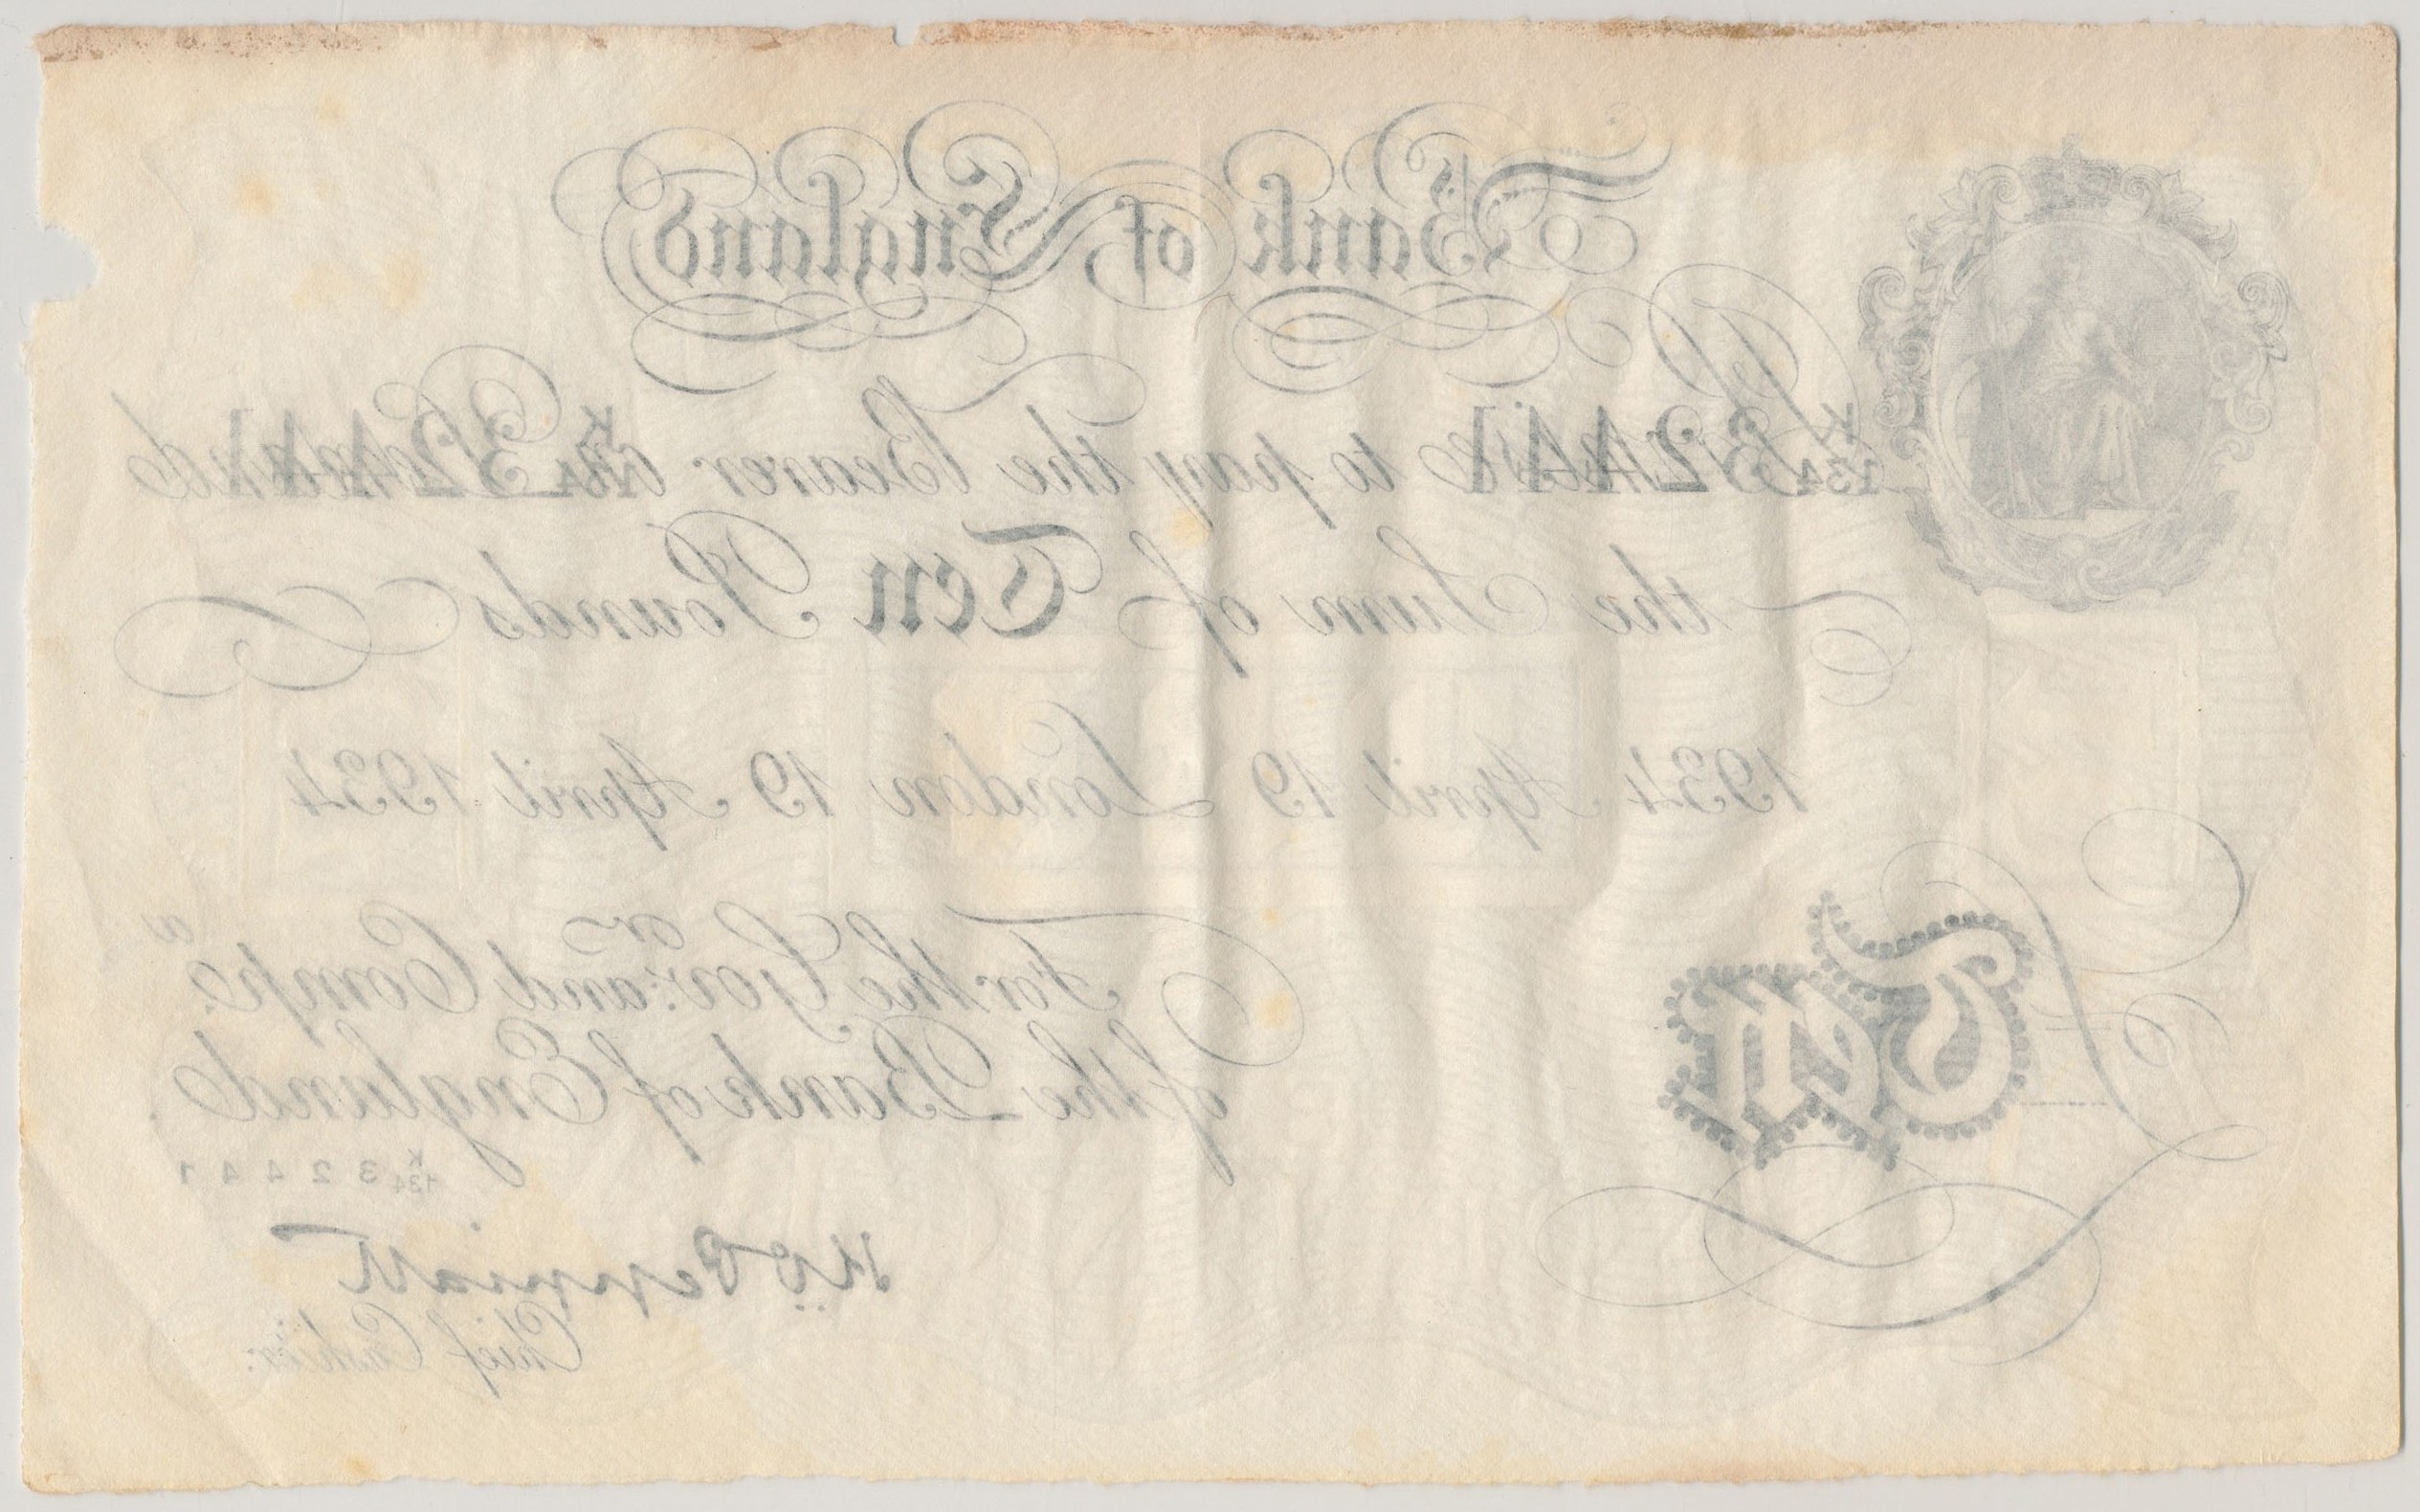 Bank of England
K 134 32441 Promise to pay the Bearer on Demand K 134 32441
the Sum of Ten Pounds
1934 April 19 London 19 April 1934
For the Gov.or and Comp.a
of the Bank of England.
K 134 32441
Ten
K O Peppiatt
Chief Cashier.